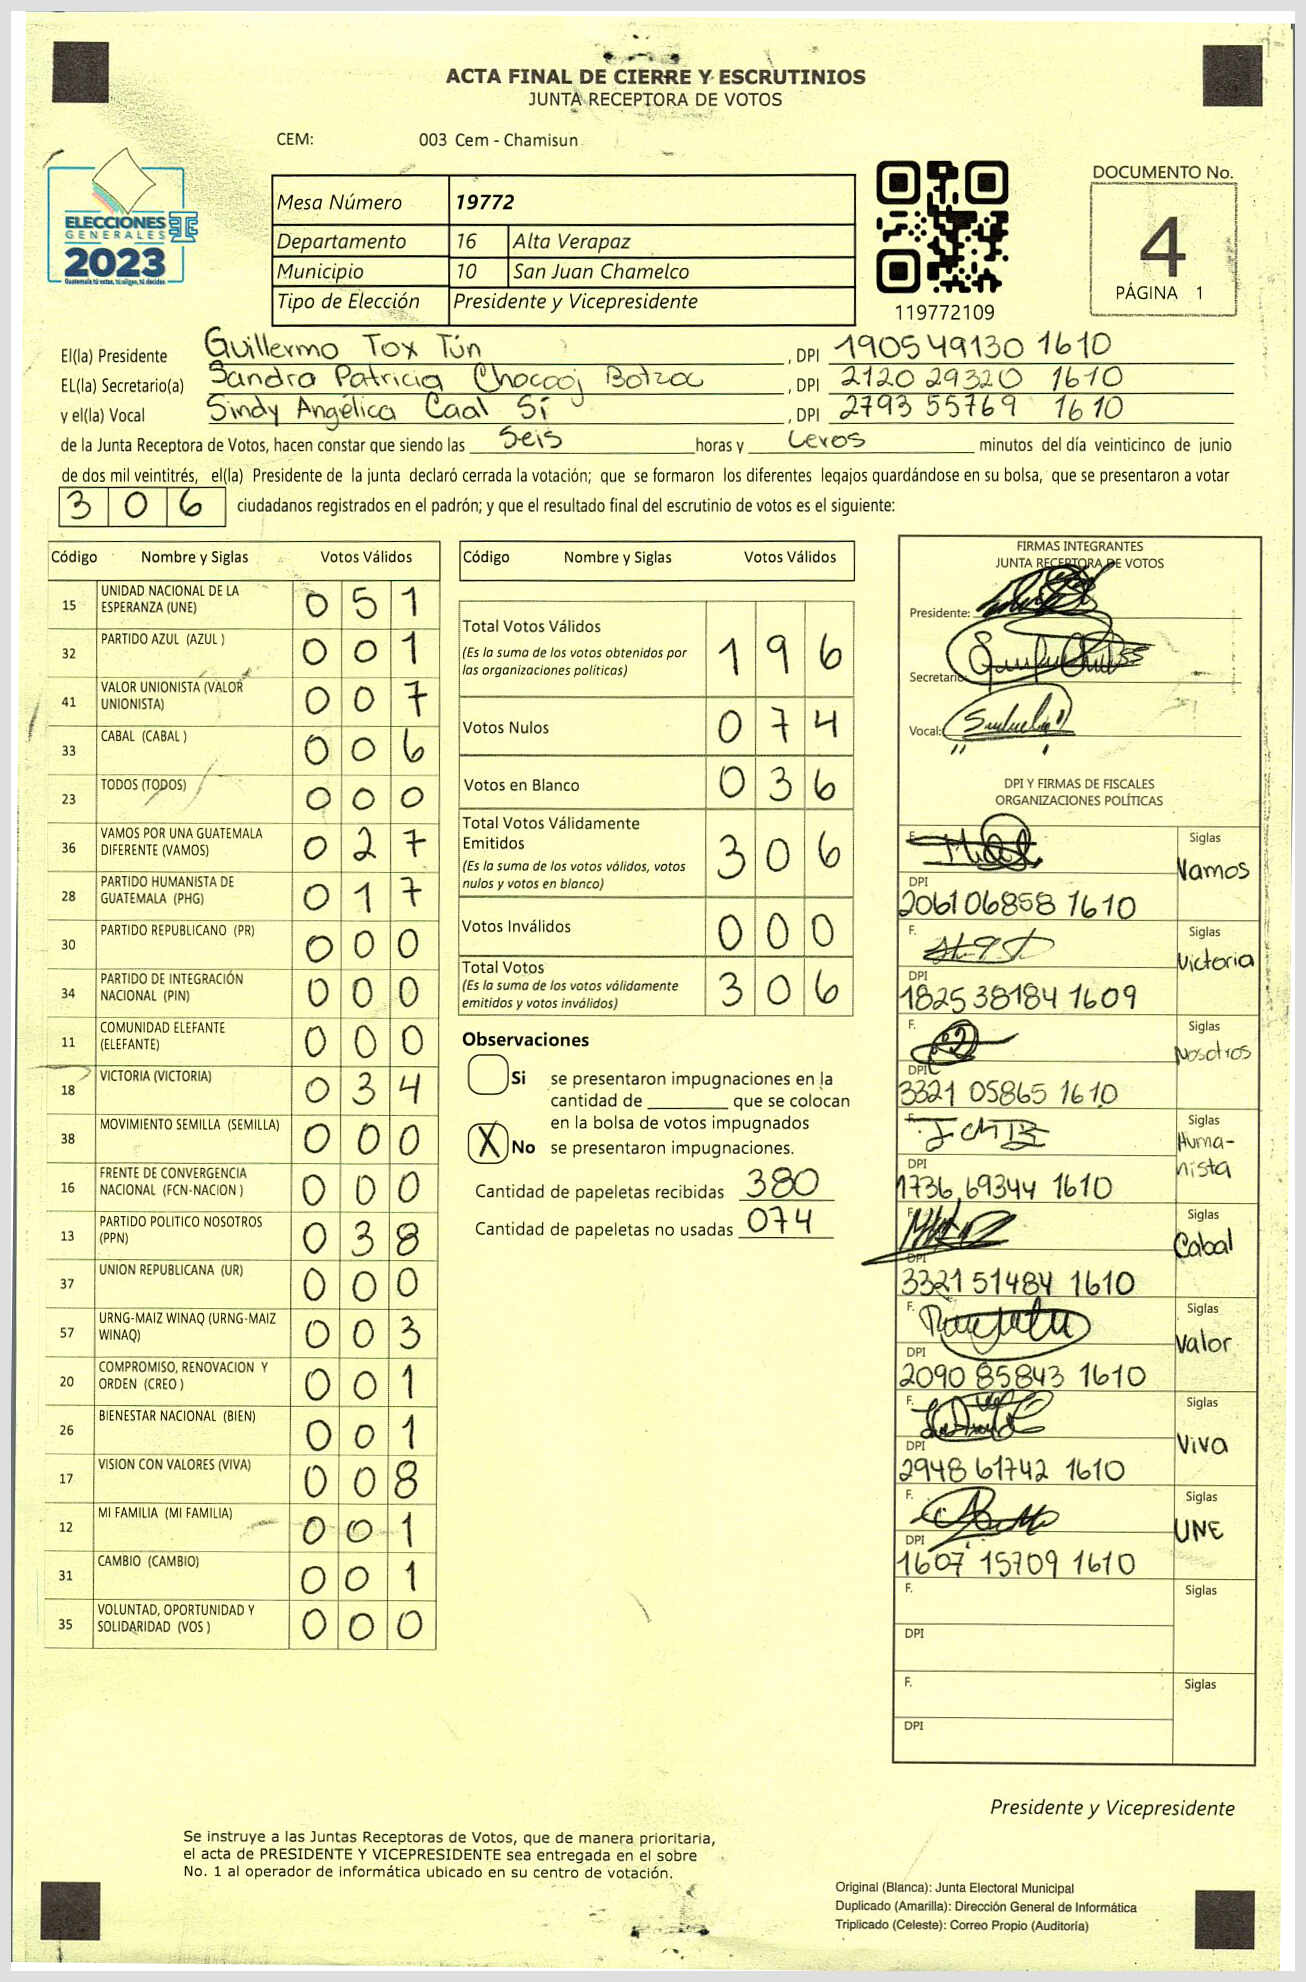 ACTA FINAL DE CIERRE Y ESCRUTINIOS
JUNTA RECEPTORA DE VOTOS
CEM: 003 Cem - Chamisun
ELECCIONES
GENERALES
2023
Guatemala tú votas, tú eliges, tú decides
Mesa Número 19772
Departamento 16 Alta Verapaz
Municipio 10 San Juan Chamelco
Tipo de Elección Presidente y Vicepresidente
119772109
DOCUMENTO No.
4
PÁGINA 1
El(la) Presidente Guillermo Tox Tún , DPI 190549130 1610
EL(la) Secretario(a) Sandra Patricia Chocooj Botzoc , DPI 2120 29320 1610
y el(la) Vocal Sindy Angélica Caal Sí , DPI 2793 55769 1610
de la Junta Receptora de Votos, hacen constar que siendo las Seis horas y Ceros minutos del día veinticinco de junio
de dos mil veintitrés, el(la) Presidente de la junta declaró cerrada la votación; que se formaron los diferentes legajos guardándose en su bolsa, que se presentaron a votar
306 ciudadanos registrados en el padrón; y que el resultado final del escrutinio de votos es el siguiente:
Código Nombre y Siglas Votos Válidos
15 UNIDAD NACIONAL DE LA ESPERANZA (UNE) 051
32 PARTIDO AZUL (AZUL ) 001
41 VALOR UNIONISTA (VALOR UNIONISTA) 007
33 CABAL (CABAL ) 006
23 TODOS (TODOS) 000
36 VAMOS POR UNA GUATEMALA DIFERENTE (VAMOS) 027
28 PARTIDO HUMANISTA DE GUATEMALA (PHG) 017
30 PARTIDO REPUBLICANO (PR) 000
34 PARTIDO DE INTEGRACIÓN NACIONAL (PIN) 000
11 COMUNIDAD ELEFANTE (ELEFANTE) 000
18 VICTORIA (VICTORIA) 034
38 MOVIMIENTO SEMILLA (SEMILLA) 000
16 FRENTE DE CONVERGENCIA NACIONAL (FCN-NACION ) 000
13 PARTIDO POLITICO NOSOTROS (PPN) 038
37 UNION REPUBLICANA (UR) 000
57 URNG-MAIZ WINAQ (URNG-MAIZ WINAQ) 003
20 COMPROMISO, RENOVACION Y ORDEN (CREO ) 001
26 BIENESTAR NACIONAL (BIEN) 001
17 VISION CON VALORES (VIVA) 008
12 MI FAMILIA (MI FAMILIA) 001
31 CAMBIO (CAMBIO) 001
35 VOLUNTAD, OPORTUNIDAD Y SOLIDARIDAD (VOS ) 000
Código Nombre y Siglas Votos Válidos
Total Votos Válidos 196
(Es la suma de los votos obtenidos por
las organizaciones politicas)
Votos Nulos 074
Votos en Blanco 036
Total Votos Válidamente
Emitidos 306
(Es la suma de los votos válidos, votos
nulos y votos en blanco)
Votos Inválidos 000
Total Votos 306
(Es la suma de los votos válidamente
emitidos y votos inválidos)
Observaciones
Si se presentaron impugnaciones en la
cantidad de ________ que se colocan
en la bolsa de votos impugnados
X No se presentaron impugnaciones.
Cantidad de papeletas recibidas 380
Cantidad de papeletas no usadas 074
FIRMAS INTEGRANTES
JUNTA RECEPTORA DE VOTOS
Presidente:
Secretario:
Vocal:
DPI Y FIRMAS DE FISCALES
ORGANIZACIONES POLÍTICAS
F. Siglas Vamos
DPI 2061 06858 1610
F. Siglas Victoria
DPI 1825 38184 1609
F. Siglas Nosotros
DPI 3321 05865 1610
F. Siglas Huma-
nista
DPI 1736 69344 1610
F. Siglas Cabal
DPI 3321 51484 1610
F. Siglas Valor
DPI 2090 85843 1610
F. Siglas Viva
DPI 2948 61742 1610
F. Siglas UNE
DPI 1607 15709 1610
F. Siglas
DPI
F. Siglas
DPI
Presidente y Vicepresidente
Se instruye a las Juntas Receptoras de Votos, que de manera prioritaria,
el acta de PRESIDENTE Y VICEPRESIDENTE sea entregada en el sobre
No. 1 al operador de informática ubicado en su centro de votación.
Original (Blanca): Junta Electoral Municipal
Duplicado (Amarilla): Dirección General de Informática
Triplicado (Celeste): Correo Propio (Auditoría)